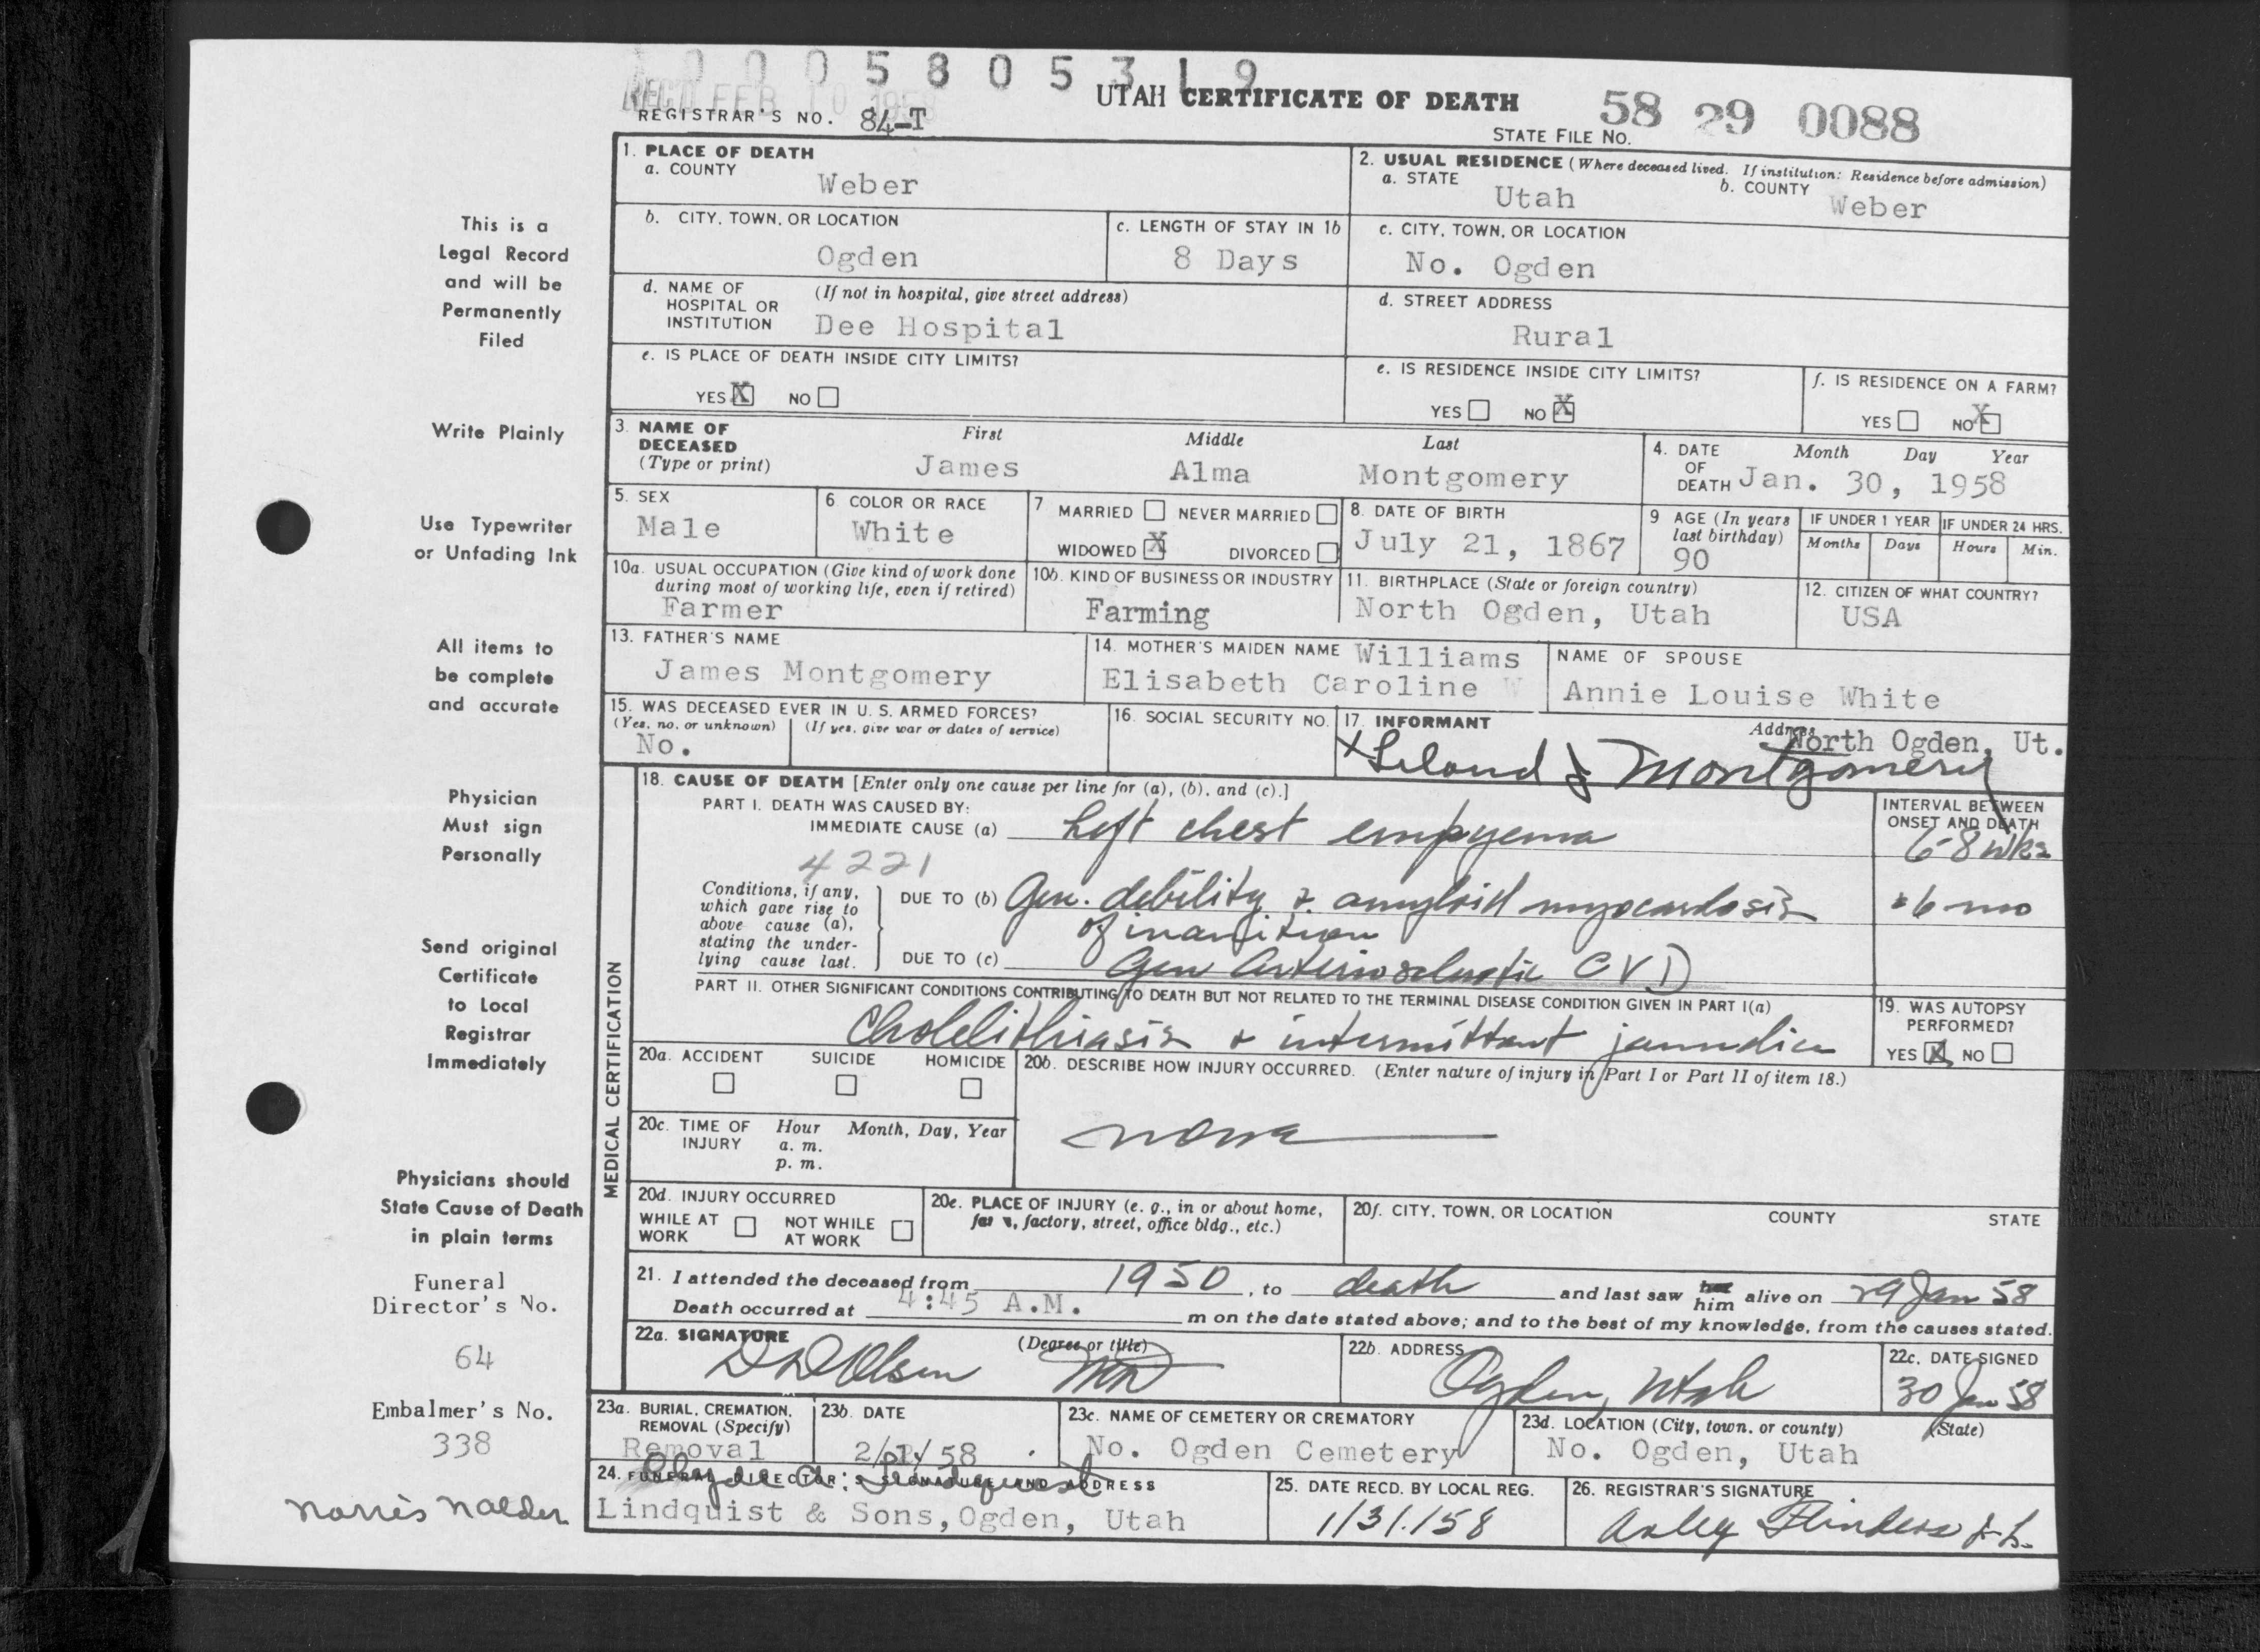 10005805319
REC'D FEB 10 1958
UTAH CERTIFICATE OF DEATH
58 29 0088
REGISTRAR'S NO. 84-T
STATE FILE NO.
1. PLACE OF DEATH
a. COUNTY
Weber
2. USUAL RESIDENCE (Where deceased lived. If institution: Residence before admission)
a. STATE
Utah
b. COUNTY
Weber
b. CITY, TOWN, OR LOCATION
Ogden
c. LENGTH OF STAY IN 1b
8 Days
c. CITY, TOWN, OR LOCATION
No. Ogden
d. NAME OF HOSPITAL OR INSTITUTION
(If not in hospital, give street address)
Dee Hospital
d. STREET ADDRESS
Rural
e. IS PLACE OF DEATH INSIDE CITY LIMITS?
YES X NO
e. IS RESIDENCE INSIDE CITY LIMITS?
YES NO X
f. IS RESIDENCE ON A FARM?
YES NO X
3. NAME OF DECEASED
(Type or print)
First
James
Middle
Alma
Last
Montgomery
4. DATE OF DEATH
Month Day Year
Jan. 30, 1958
5. SEX
Male
6 COLOR OR RACE
White
7 MARRIED NEVER MARRIED
WIDOWED X DIVORCED
8. DATE OF BIRTH
July 21, 1867
9 AGE (In years last birthday)
90
IF UNDER 1 YEAR
Months Days
IF UNDER 24 HRS.
Hours Min.
10a. USUAL OCCUPATION (Give kind of work done during most of working life, even if retired)
Farmer
10b. KIND OF BUSINESS OR INDUSTRY
Farming
11. BIRTHPLACE (State or foreign country)
North Ogden, Utah
12. CITIZEN OF WHAT COUNTRY?
USA
13. FATHER'S NAME
James Montgomery
14. MOTHER'S MAIDEN NAME Williams
Elisabeth Caroline W
NAME OF SPOUSE
Annie Louise White
15. WAS DECEASED EVER IN U. S. ARMED FORCES?
(Yes, no, or unknown) (If yes, give war or dates of service)
No.
16. SOCIAL SECURITY NO.
17. INFORMANT
Address
North Ogden, Ut.
x Leland J Montgomery
MEDICAL CERTIFICATION
18. CAUSE OF DEATH [Enter only one cause per line for (a), (b), and (c).]
PART I. DEATH WAS CAUSED BY:
IMMEDIATE CAUSE (a) Left chest empyema
INTERVAL BETWEEN ONSET AND DEATH
6-8 wks
4221
Conditions, if any, which gave rise to above cause (a), stating the underlying cause last.
DUE TO (b) Gen. debility & amyloid myocardosis
of inanition
6 mo
DUE TO (c) Gen Arteriosclerotic CVD
PART II. OTHER SIGNIFICANT CONDITIONS CONTRIBUTING TO DEATH BUT NOT RELATED TO THE TERMINAL DISEASE CONDITION GIVEN IN PART I(a)
Cholelithiasis & intermittent jaundice
19. WAS AUTOPSY PERFORMED?
YES X NO
20a. ACCIDENT SUICIDE HOMICIDE
20b. DESCRIBE HOW INJURY OCCURRED. (Enter nature of injury in Part I or Part II of item 18.)
none
20c. TIME OF INJURY
Hour Month, Day, Year
a. m.
p. m.
20d. INJURY OCCURRED
WHILE AT WORK NOT WHILE AT WORK
20e. PLACE OF INJURY (e. g., in or about home, factory, street, office bldg., etc.)
20f. CITY, TOWN, OR LOCATION COUNTY STATE
21. I attended the deceased from 1950, to death and last saw him alive on 29 Jan 58
Death occurred at 4:45 A.M. m on the date stated above; and to the best of my knowledge, from the causes stated.
22a. SIGNATURE (Degree or title)
Olsen MD
22b. ADDRESS
Ogden, Utah
22c. DATE SIGNED
30 Jan 58
23a. BURIAL, CREMATION, REMOVAL (Specify)
Removal
23b. DATE
2/1/58
23c. NAME OF CEMETERY OR CREMATORY
No. Ogden Cemetery
23d. LOCATION (City, town, or county) (State)
No. Ogden, Utah
24. FUNERAL DIRECTOR'S SIGNATURE AND ADDRESS
Lindquist
Lindquist & Sons, Ogden, Utah
25. DATE RECD. BY LOCAL REG.
1/31/58
26. REGISTRAR'S SIGNATURE
Flinders
This is a
Legal Record
and will be
Permanently
Filed
Write Plainly
Use Typewriter
or Unfading Ink
All items to
be complete
and accurate
Physician
Must sign
Personally
Send original
Certificate
to Local
Registrar
Immediately
Physicians should
State Cause of Death
in plain terms
Funeral
Director's No.
64
Embalmer's No.
338
Norris Nalder